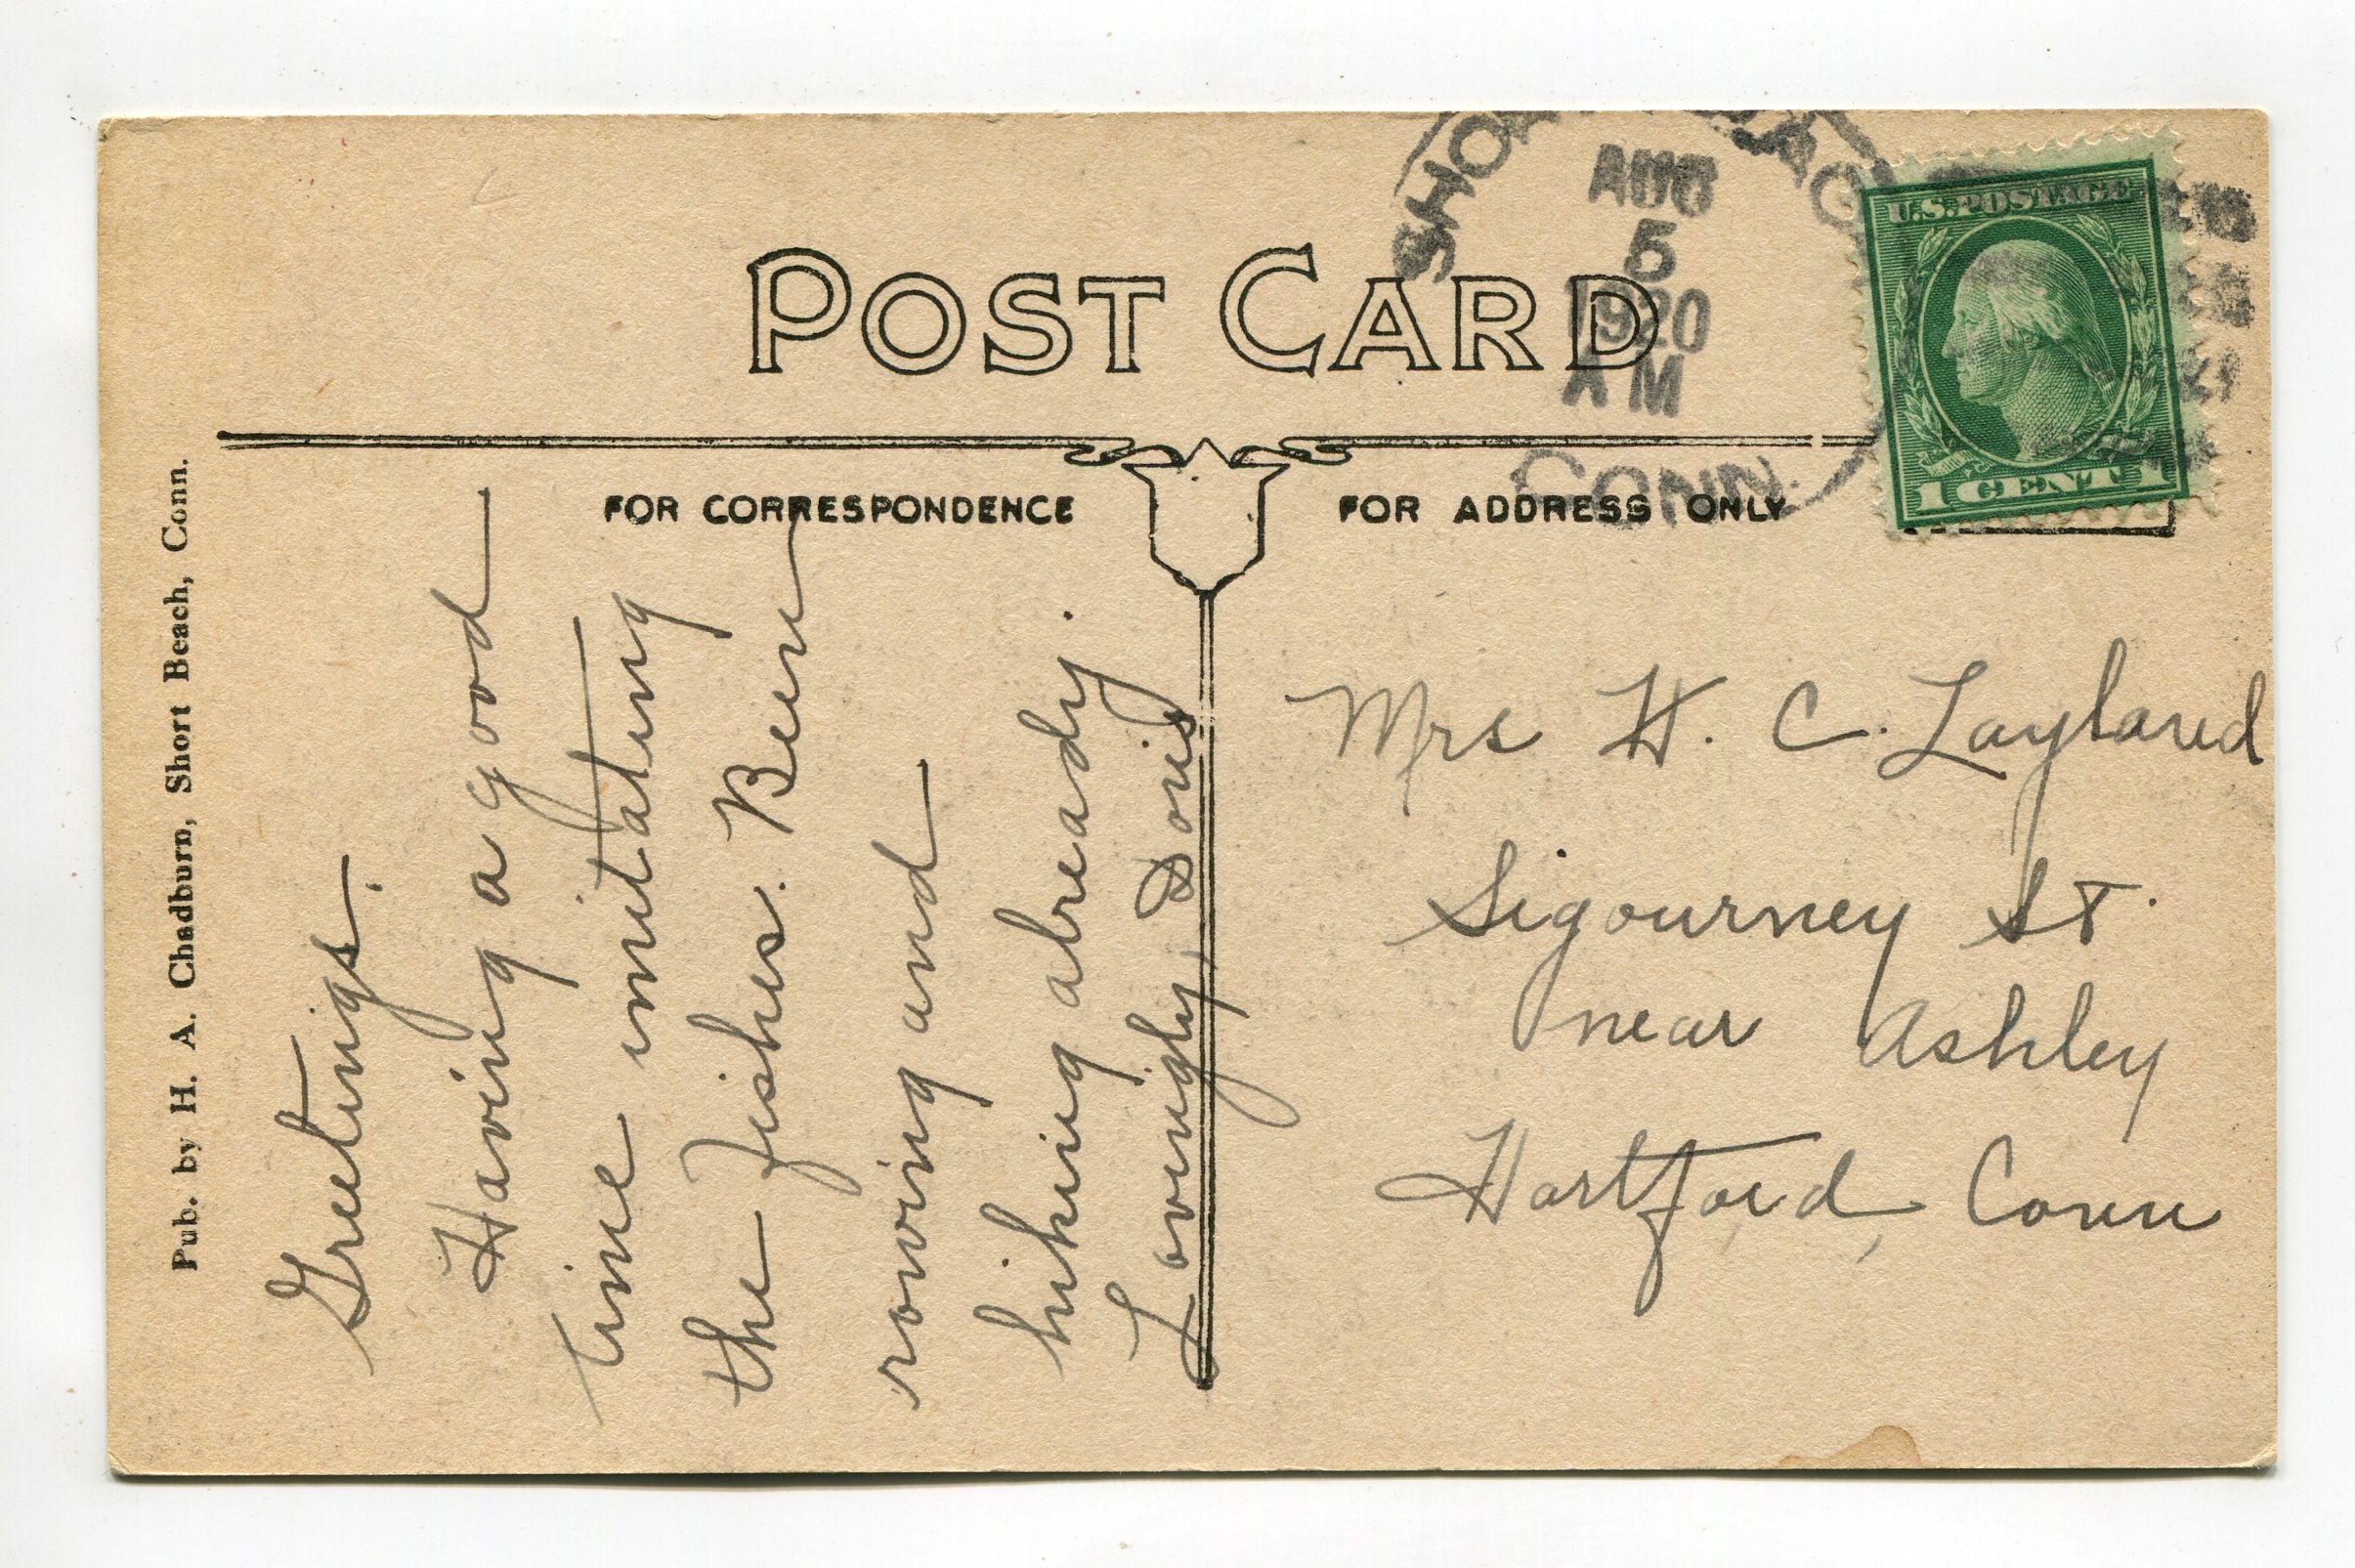 POST CARD
FOR CORRESPONDENCE
FOR ADDRESS ONLY
AUG
5
1920
AM
CONN.
U.S. POSTAGE
1 CENT 1
Pub. by H. A. Chadburn, Short Beach, Conn.
Greetings.
Having a good
time imitating
the fishes. Been
roving and
hiking already.
Lovingly, Doris
Mrs H. C. Layland
Sigourney St.
near Ashley
Hartford, Conn